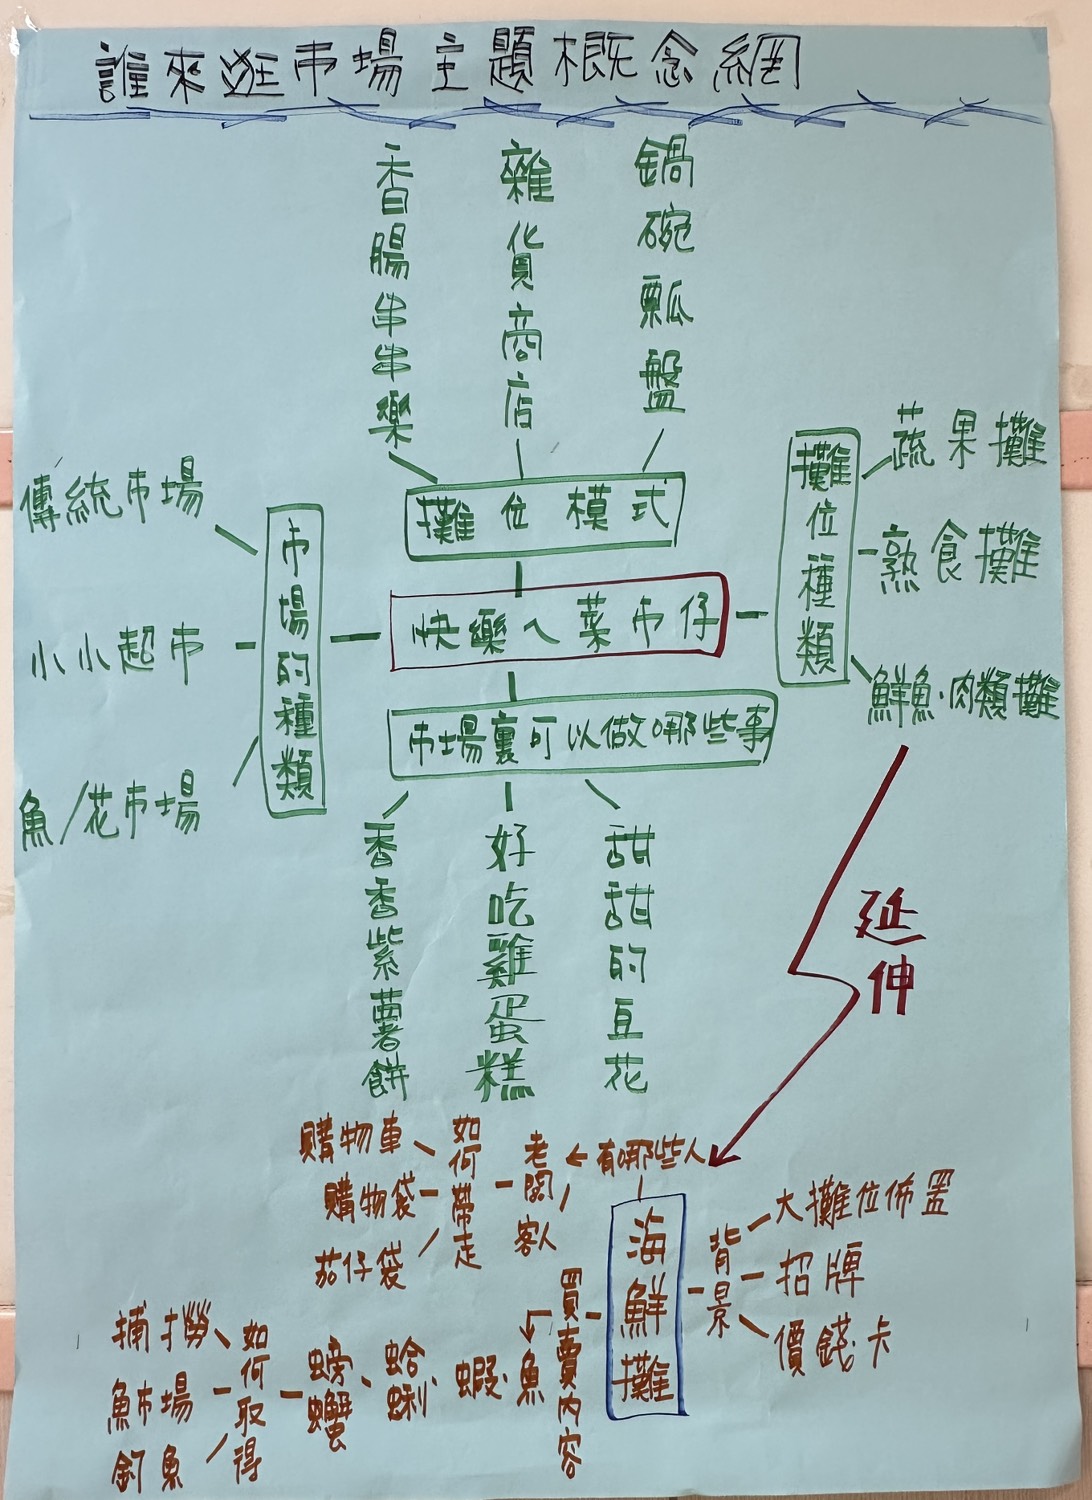 誰來逛市場主題概念網
香腸串串樂
雜貨商店
鍋碗瓢盤
攤位模式
傳統市場
小小超市
魚/花市場
市場的種類
快樂ㄟ菜市仔
攤位種類
蔬果攤
熟食攤
鮮魚·肉類攤
市場裏可以做哪些事
香香紫薯餅
好吃雞蛋糕
甜甜的豆花
延伸
海鮮攤
有哪些人
老闆
客人
如何帶走
購物車
購物袋
茄仔袋
背景
大攤位佈置
招牌
價錢卡
買賣內容
魚、蝦、蛤蜊、螃蟹
如何取得
捕撈
魚市場
釣魚